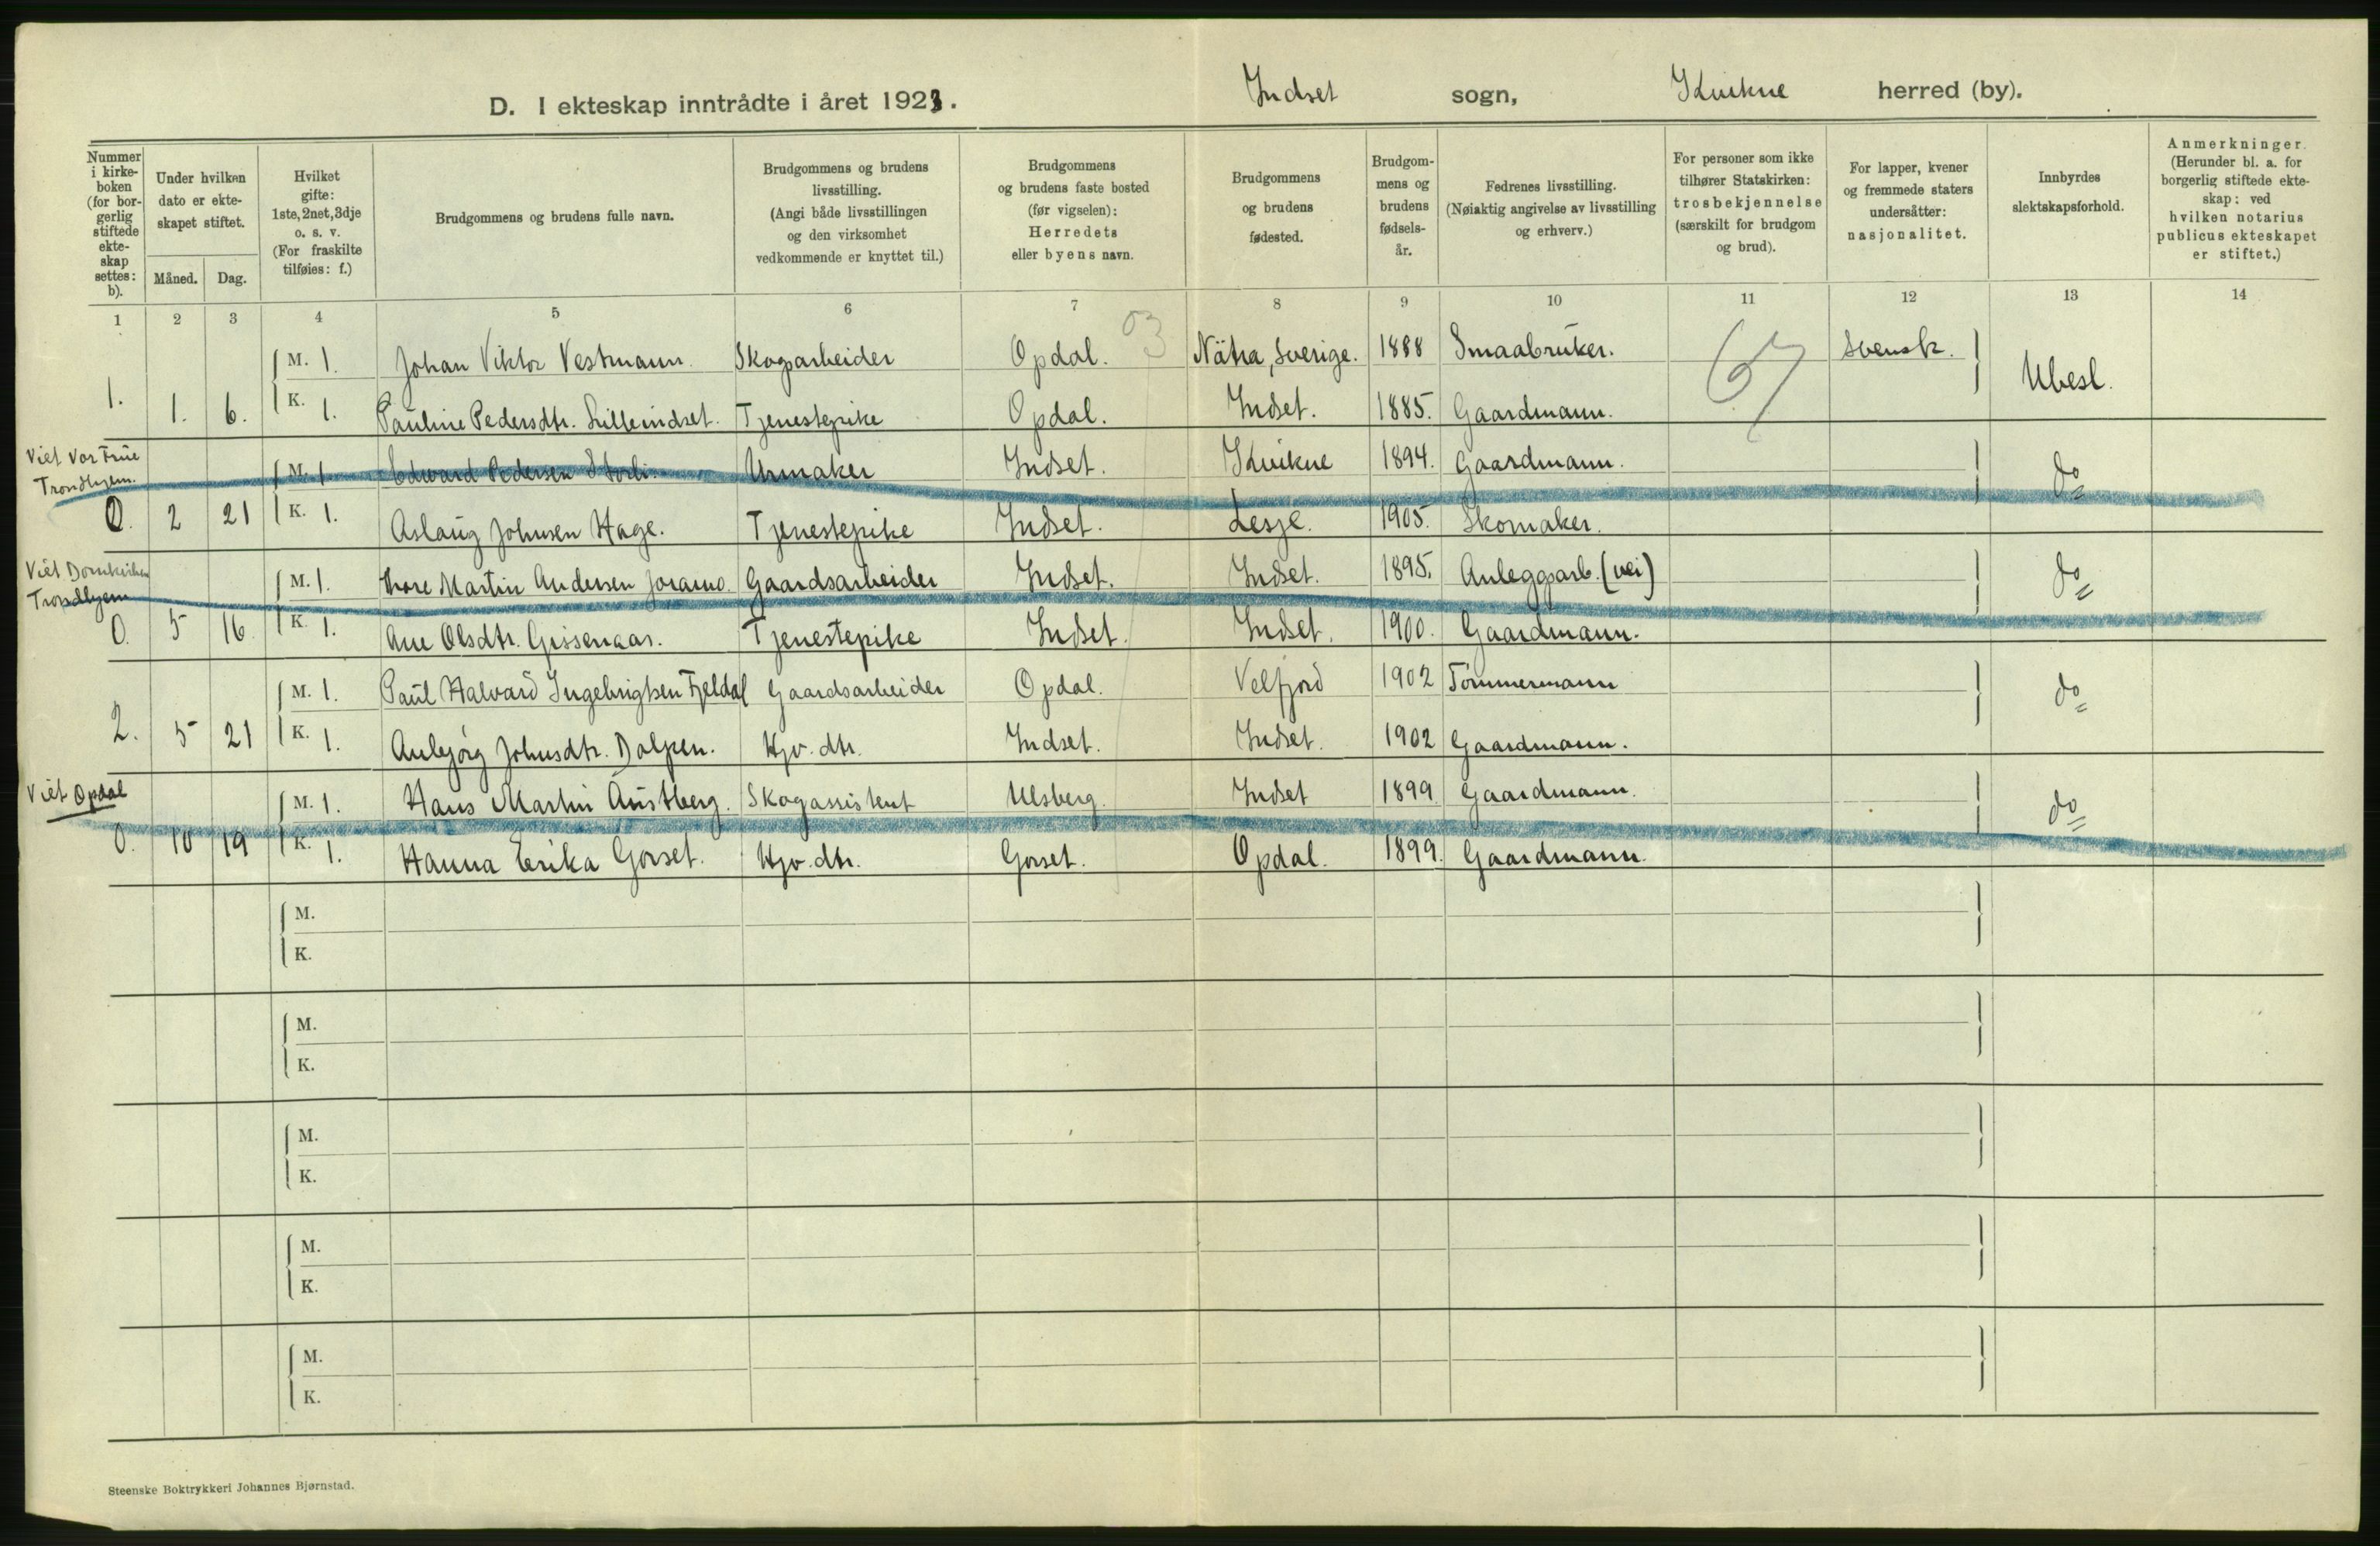 D. I ekteskap inntrådte i året 1923. Indset sogn, Kvikne herred (by).
Nummer i kirke-boken (for bor-gerlig stiftede ekte-skap settes: b).
Under hvilken dato er ekte-skapet stiftet.
Måned. Dag.
Hvilket gifte: 1ste, 2net, 3dje o. s. v. (For fraskilte tilføies: f.)
Brudgommens og brudens fulle navn.
Brudgommens og brudens livsstilling. (Angi både livsstillingen og den virksomhet vedkommende er knyttet til.)
Brudgommens og brudens faste bosted (før vigselen): Herredets eller byens navn.
Brudgommens og brudens fødested.
Brudgom-mens og brudens fødsels-år.
Fedrenes livsstilling. (Nøiaktig angivelse av livsstilling og erhverv.)
For personer som ikke tilhører Statskirken: trosbekjennelse (særskilt for brudgom og brud).
For lapper, kvener og fremmede staters undersåtter: nasjonalitet.
Innbyrdes slektskapsforhold.
Anmerkninger. (Herunder bl. a. for borgerlig stiftede ekte-skap: ved hvilken notarius publicus ekteskapet er stiftet.)
1 2 3 4 5 6 7 8 9 10 11 12 13 14
03
67
M. 1. Johan Viktor Vestmann. Skogsarbeider Opdal. Nätra, Sverige. 1888 Smaabruker. Svensk. Ubesl.
1. 1. 6. K. 1. Pauline Pedersdtr. Lilleindset. Tjenestepike Opdal. Indset. 1885. Gaardmann.
Viet Vor Frue
Trondhjem.
M. 1 Edward Pedersen Storli. Urmaker Indset. Kvikne 1894. Gaardmann. do
0. 2 21 K. 1. Aslaug Johnsen Hage. Tjenestepike Indset. Lesje. 1905. Skomaker.
Viet Domkirken
Trondhjem
M. 1. Thore Martin Andersen Joramo. Gaardsarbeider Indset. Indset. 1895. Anleggsarb. (vei) do
0. 5 16. K. 1. Ane Olsdtr. Gissenaas. Tjenestepike Indset. Indset. 1900. Gaardmann.
M. 1. Paul Halvard Ingebrigtsen Fjeldal Gaardsarbeider Opdal. Velfjord 1902 Tömmermann do
2. 5 21 K. 1. Anbjørg Johnsdtr. Dalsen. Hjv. dtr. Indset. Indset. 1902 Gaardmann.
Viet Opdal
M. 1. Hans Martin Austberg. Skogassistent Ulsberg. Indset 1899. Gaardmann. do
0. 10 19 K. 1. Hanna Erika Gorset. Hjv. dtr. Gorset. Opdal. 1899. Gaardmann.
M.
K.
M.
K.
M.
K.
M.
K.
M.
K.
Steenske Boktrykkeri Johannes Bjørnstad.